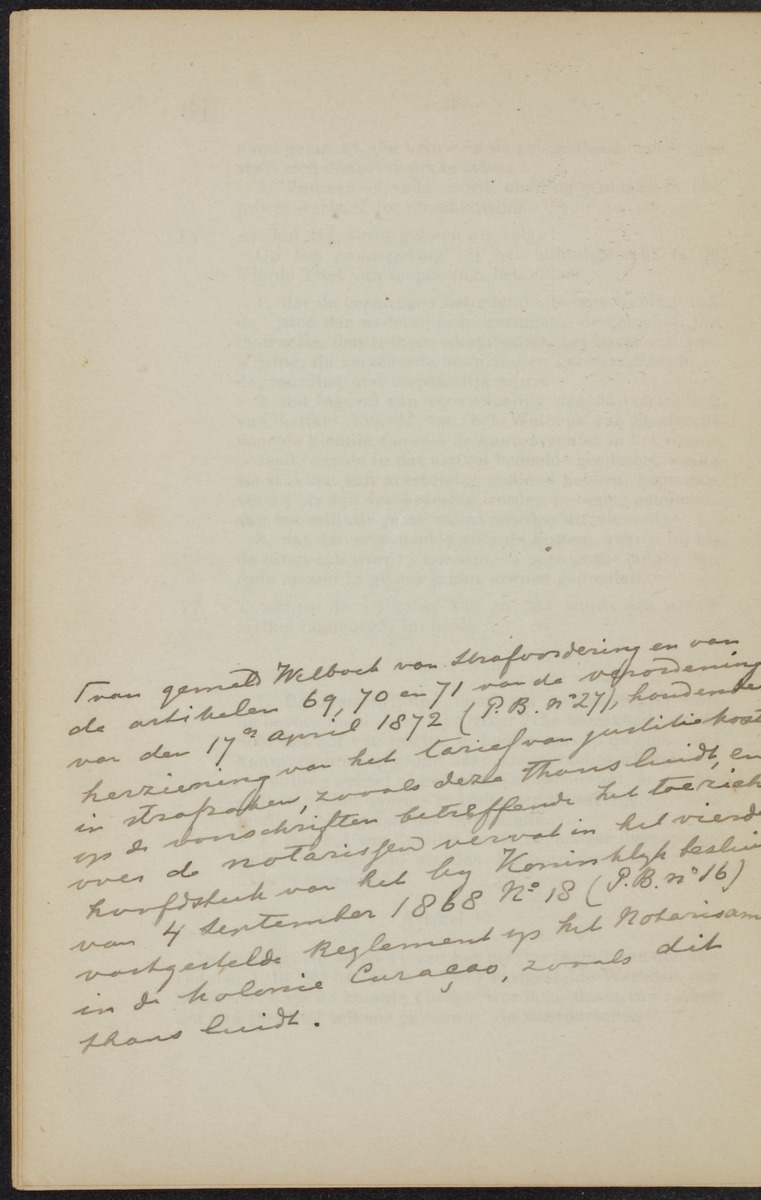 van gemeld Wetboek van Strafvordering en van
de artikelen 69, 70 en 71 van de verordening
van den 17en april 1872 (P.B. no 27), houdende
herziening van het tarief van justitiekost
in strafzaken, zooals deze thans luidt, en
op de voorschriften betreffende het toezich
over de notarissen vervat in het vierde
hoofdstuk van het by Koninklyk beslui
van 4 September 1868 No 18 (P.B. no 16)
vastgestelde Reglement op het Notarisam
in de kolonie Curaçao, zooals dit
thans luidt.